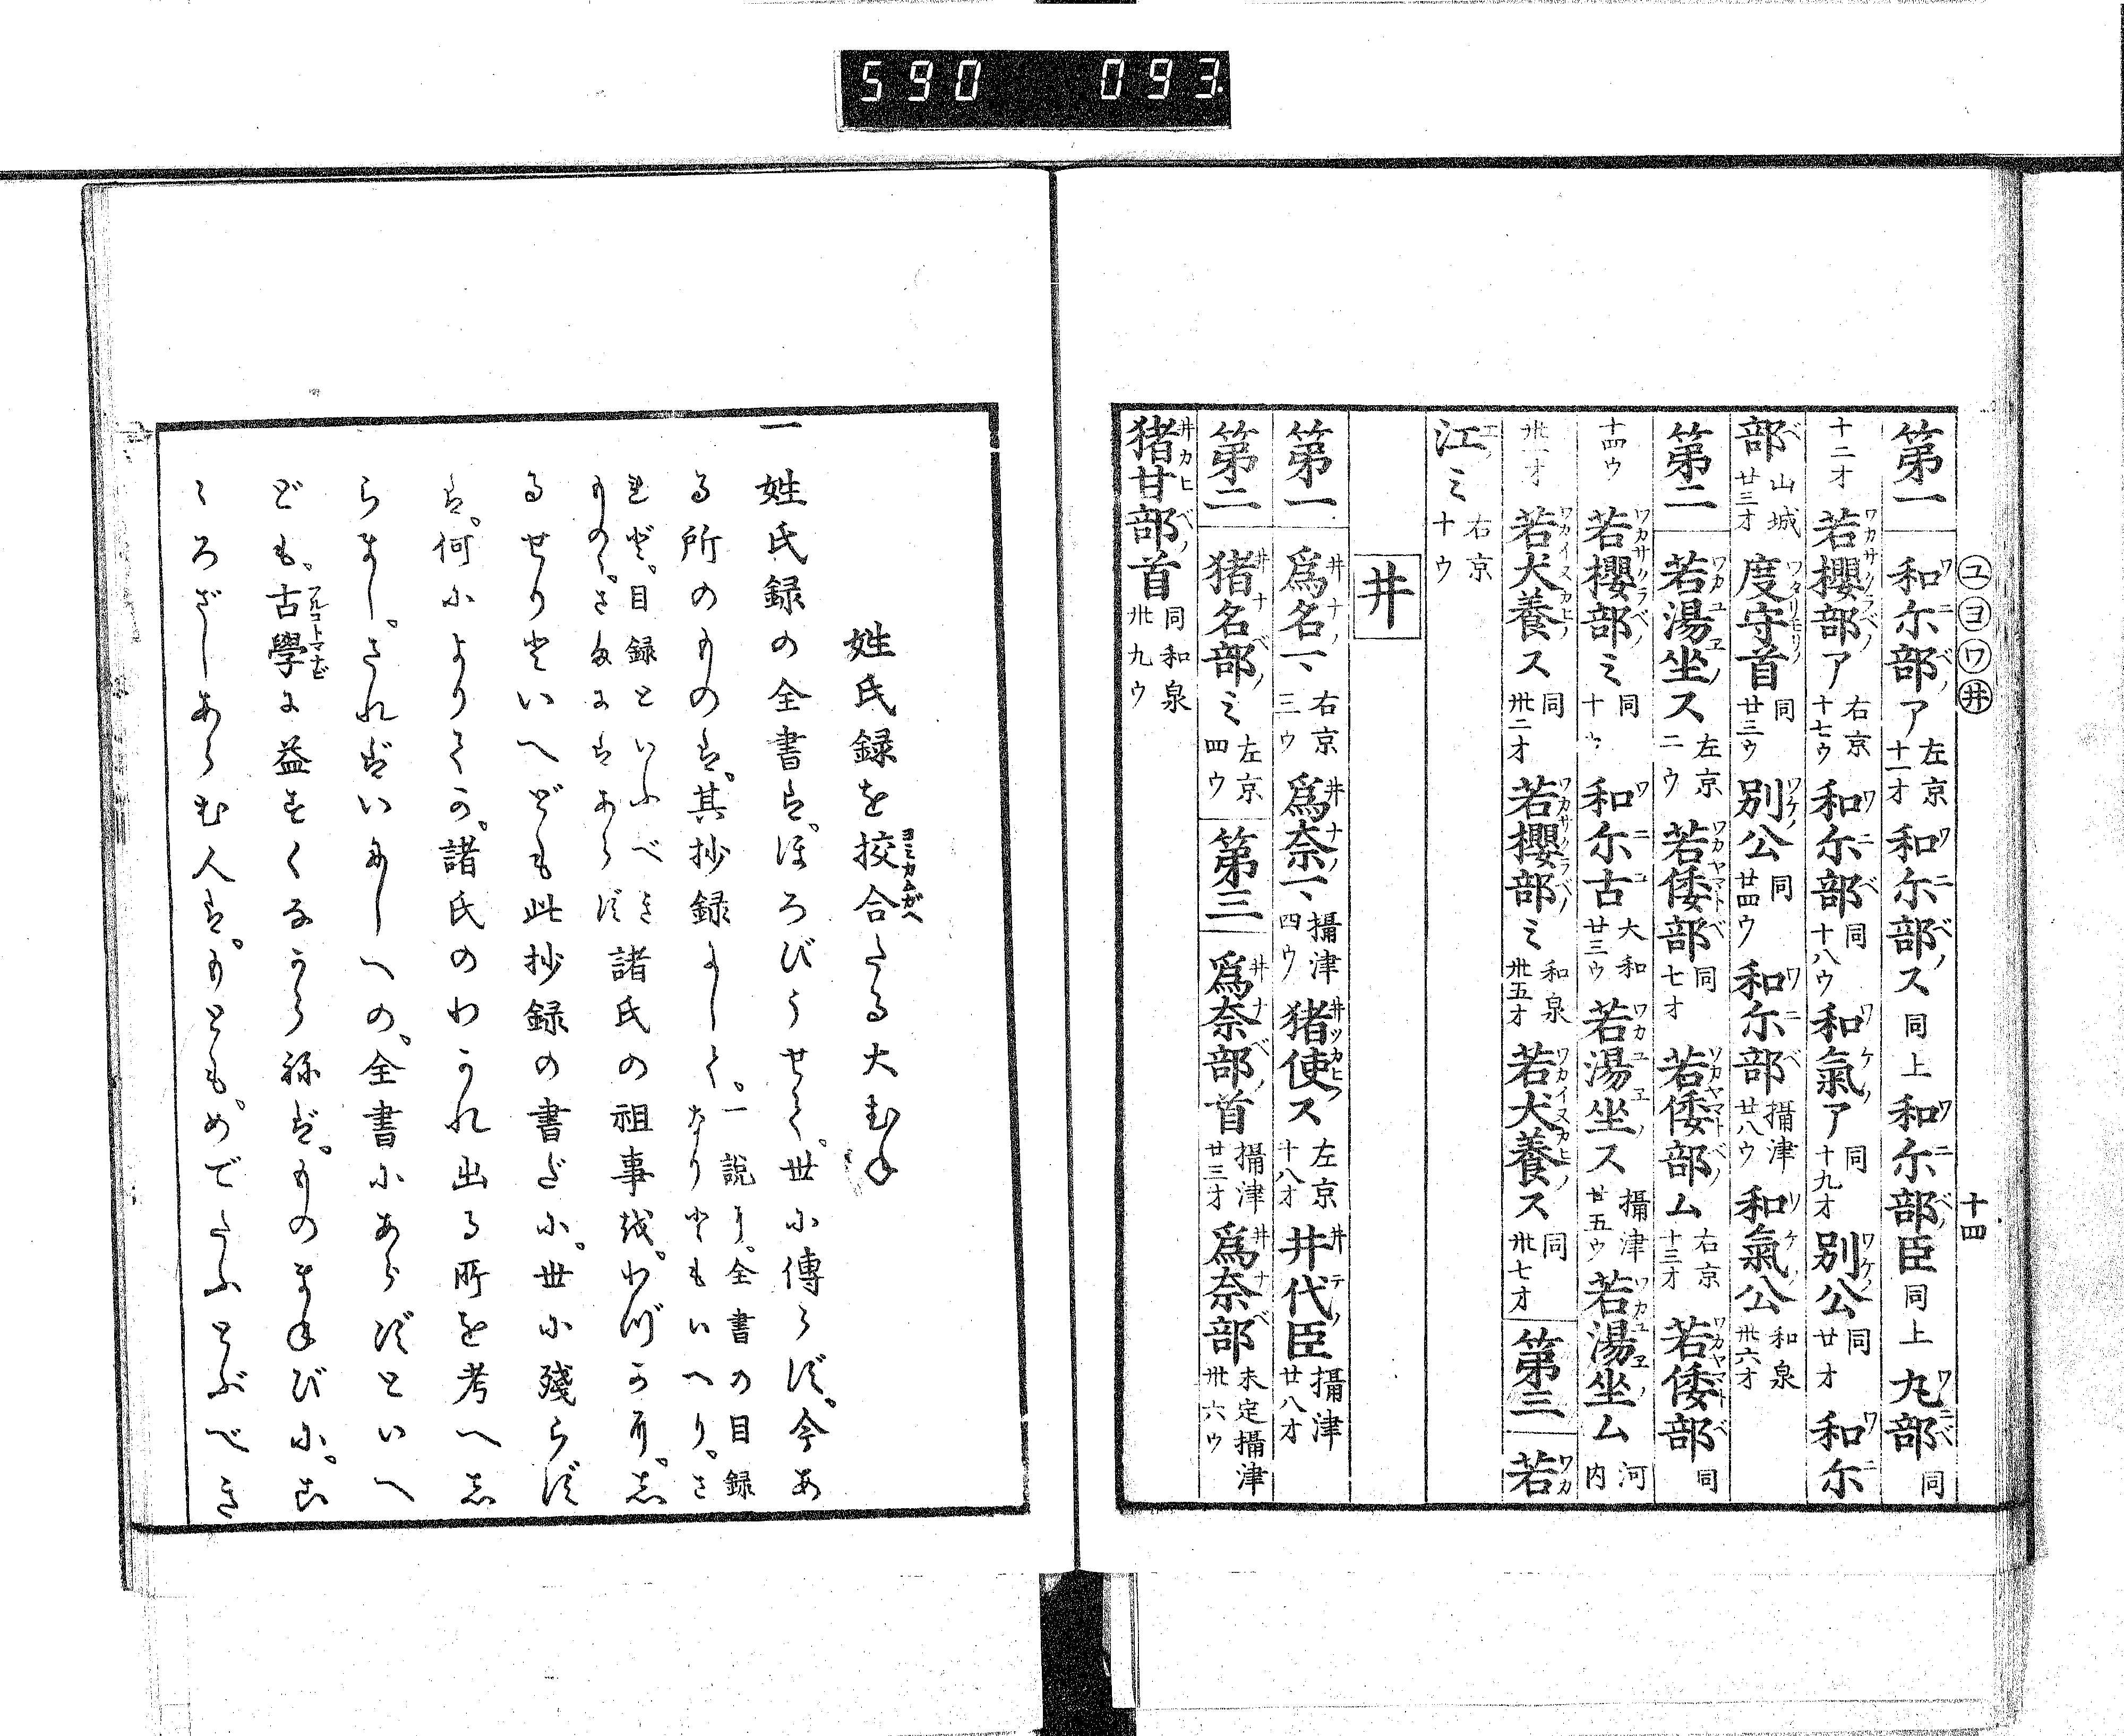 590 093
ユヨワ井
十四
第一 和尓部ア 左京十一オ 和尓部ス 同上 和尓部臣 同上 丸部 同
十二オ 若櫻部ア 右京十七ウ 和尓部 同十八ウ 和氣ア 同十九オ 別公 同廿オ 和尓
部 山城廿三オ 度守首 同廿三ウ 別公 同廿四ウ 和尓部 攝津廿八ウ 和氣公 和泉卅六オ
第二 若湯坐ス 左京二ウ 若倭部 同七オ 若倭部ム 右京十三オ 若倭部 同
十四ウ 若櫻部ミ 同十〃 和尓古 大和廿三ウ 若湯坐ス 攝津廿五ウ 若湯坐ム 河内
卅一オ 若犬養ス 同卅二オ 若櫻部ミ 和泉卅五オ 若犬養ス 同卅七オ 第三 若
江ミ 右京十ウ
井
第一 爲名一、 右京三ウ 爲奈一、 攝津四ウ 猪使ス 左京十八オ 井代臣 攝津廿八オ
第二 猪名部ミ 左京四ウ 第三 爲奈部首 攝津廿三オ 爲奈部 未定攝津卅六ウ
猪甘部首 同和泉卅九ウ
姓氏録を挍合たる大むね
一 姓氏録の全書は。ほろびうせて。世に傳らず。今あ
る所のものは。其抄録にして。一説に。全書の目録なりともいへり。さ
れど。目録といふべきものゝ。さまにはあらず 諸氏の祖事を。わづかに。しる
せりといへども此抄録の書だに。世に殘らず
は。何によりてか。諸氏のわかれ出る所を考へし
らまし。されどいにしへの。全書にあらずといへ
ども。古學に益すくなからねば。ものまねびに。こ
ゝろざしあらむ人は。もとも。めでたふとぶべき